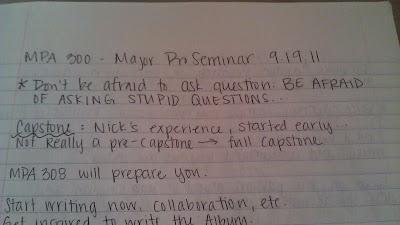 MPA 300 - Major ProSeminar 9.19.11
* Don't be afraid to ask question: BE AFRAID
OF ASKING STUPID QUESTIONS...
Capstone: Nick's experience, started early...
Not Really a pre-capstone → full capstone
MPA 308 will prepare you.
Start writing now, collaboration, etc.
Get inspired to write the Album.